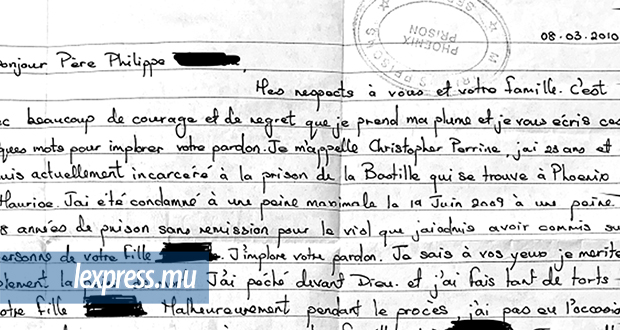 08.03.2010
PHOENIX
PRISON
onjour Père Philippe
Mes respects à vous et votre famille. C'est
ec beaucoup de courage et de regret que je prend ma plume et je vous écris ces
ques mots pour implorer votre pardon. Je m'appelle Christopher Perrine, jai 23 ans et
uis actuellement incarcéré à la prison de la Bastille qui se trouve à Phoenix
Maurice. J'ai été condamné à une peine maximale le 19 Juin 2009 à une peine
8 années de prison sans remission pour le viol que jaiadmis avoir commis su
personne de votre fille. J'implore votre pardon. Je sais à vos yeux je merite
J'ai péché devant Dieu. et j'ai fais tant de torts
otre fille Malheureusement pendant le procès j'ai pas eu l'occasio
lexpress.mu